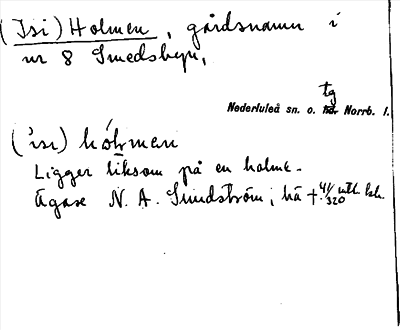 (Isi) Holmen, gårdsnamn i
nr 8 Smedsbyn,
tg
Nederluleå sn. o. Norrb. l.
(ìsı) hólmen
Ligger liksom på en holme.
Ägare N. A. Smedström, hä 41/320